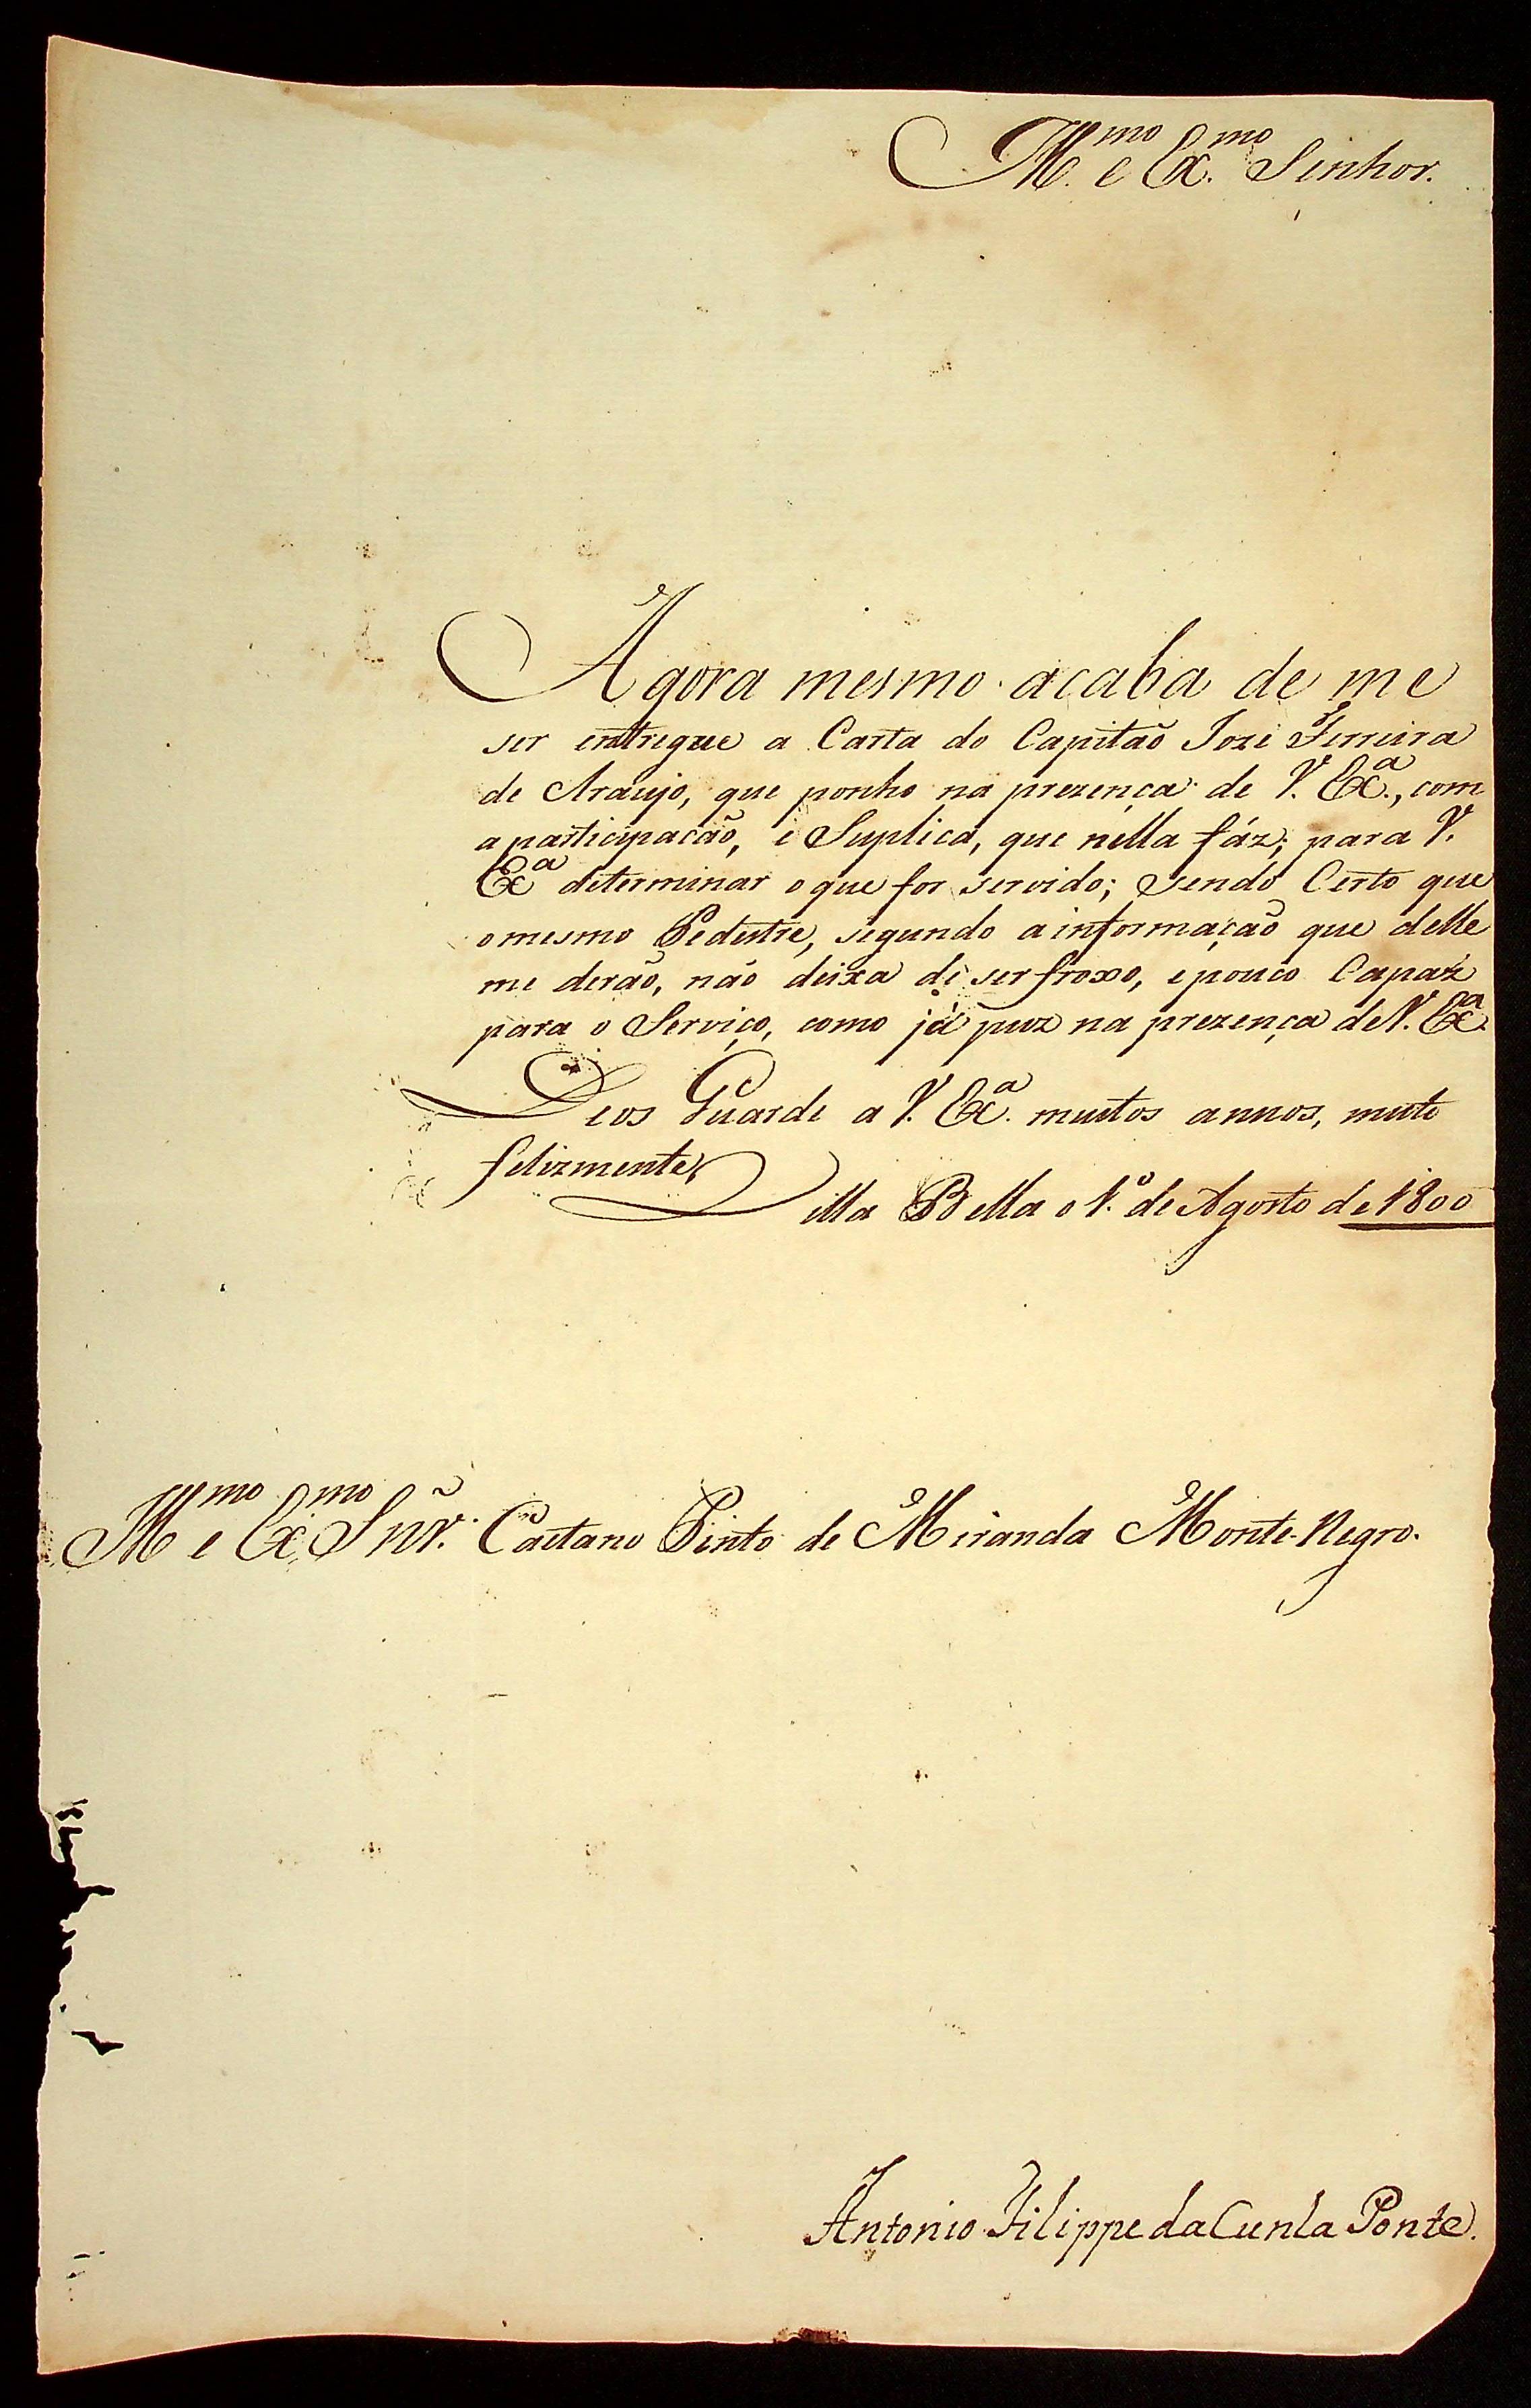 Ill.mo e Ex.mo Senhor.
Agora mesmo acaba de me
ser entregue a Carta do Capitaõ Joze Ferreira
de Araujo, que ponho na prezença de V. Ex.a, com
a participacaõ, e Suplica, que nella fáz; para V.
Exa determinar o que for servido; sendo Certo que
o mesmo Pedestre, segundo a informaçaõ que delle
me deraõ, naõ deixa de ser froxo, e pouco Capaz
para o Serviço, como já puz na prezença de V. Exa
Deos Guarde a V. Ex.a muitos annos, muito
felizmente Villa Bella o 1.o de Agosto de 1800
Ill.mo e Ex.mo Snr̃. Caetano Pinto de Miranda Monte-Negro.
Antonio Filippe da Cunha Ponte.